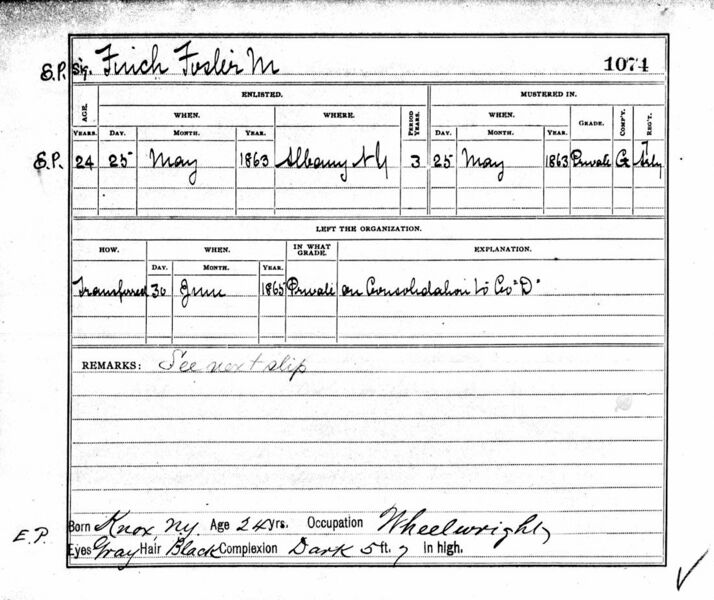 E.P. Sig. Finch Foster M 1074
ENLISTED. MUSTERED IN.
AGE. WHEN. WHERE. PERIOD YEARS. WHEN. GRADE. COMP'Y. REG'T.
YEARS. DAY. MONTH. YEAR. DAY. MONTH. YEAR.
E.P. 24 25 May 1863 Albany N Y 3 25 May 1863 Private G 7 Arty
LEFT THE ORGANIZATION.
HOW. WHEN. IN WHAT GRADE. EXPLANATION.
DAY. MONTH. YEAR.
Transferred 30 June 1865 Private on Consolidation to Co "D"
REMARKS: See next slip
Born Knox NY. Age 24 yrs. Occupation Wheelwright
E.P. Eyes Gray Hair Black Complexion Dark 5 ft. 7 in high.